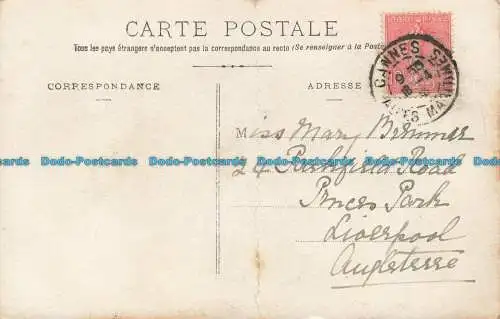 CARTE POSTALE
Tous les pays étrangers n'acceptent pas la correspondance au recto (Se renseigner à la Poste
CORRESPONDANCE
ADRESSE
CANNES
Miss Mary Bremner
24 Rushfield Road
Princes Park
Liverpool
Angleterre
Dodo-Postcards Dodo-Postcards Dodo-Postcards Dodo-Postcards
Dodo-Postcards Dodo-Postcards Dodo-Postcards Dodo-Postcards